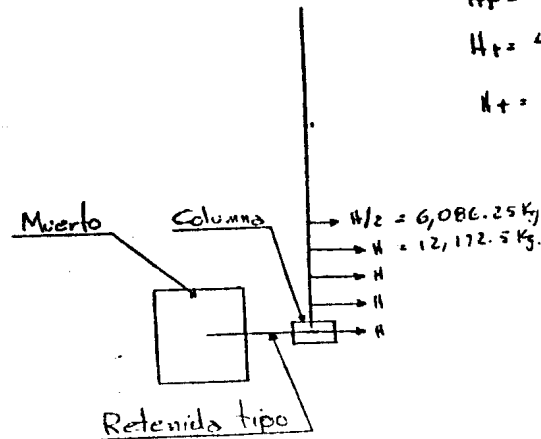 H+ =
H+ =
Muerto
Columna
H/2 = 6,086.25 Kg
H = 12,172.5 Kg.
H
H
H
Retenida tipo